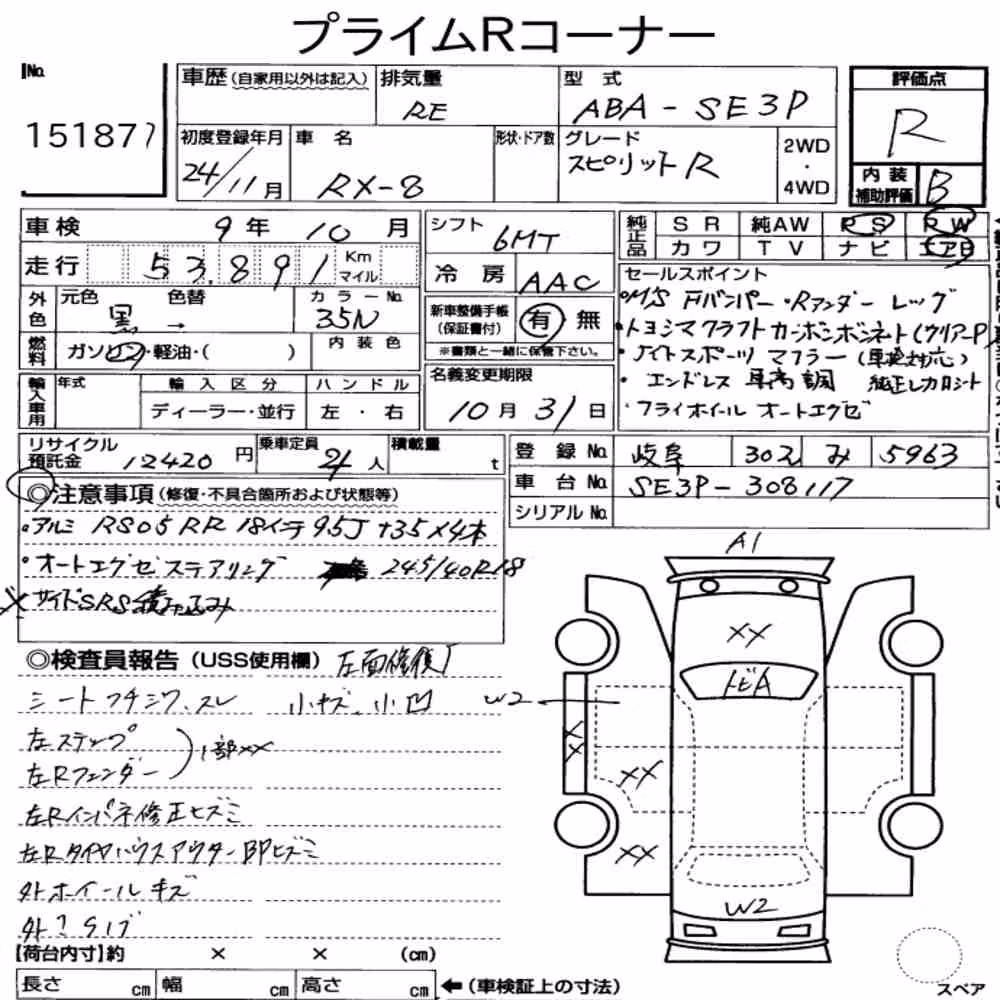 プライムRコーナー
No.
151877
車歴 (自家用以外は記入) 排気量 RE 型式 ABA-SE3P
評価点 R
初度登録年月 24/11月 車名 RX-8 形状・ドア数 グレード スピリットR 2WD・4WD
内装補助評価 B
車検 9年10月 シフト 6MT
純正品 SR 純AW PS PW
カワ TV ナビ エアB
走行 53,891 Km マイル 冷房 AAC
セールスポイント
・M'S Fバンパー・Rアンダー レッグ
・トヨシマクラフト カーボンボンネト(クリアーP)
・ナイトスポーツ マフラー(車検対応)
・エンドレス 車高調 純正レカロシート
・フライホイール オートエグゼ
外色 元色 黒 → 色替 カラーNo. 35N
新車整備手帳(保証書付) 有 無
※書類と一緒に保管下さい。
燃料 ガソリン・軽油・( ) 内装色
輸入車用 年式 輸入区分 ハンドル
ディーラー・並行 左・右
名義変更期限 10月31日
リサイクル預託金 12420円 乗車定員 4人 積載量 t
登録No. 岐阜 302 み 5963
車台No. SE3P-308117
シリアルNo.
◎注意事項 (修復・不具合箇所および状態等)
・アルミ RS05RR 18インチ 9.5J +35×4本
・オートエグゼステアリング 245/40R18
× サイドSRS積み込み
◎検査員報告 (USS使用欄) 左面修復
シートフチシワ、スレ 小キズ、小凹
左ステップ
左Rフェンダー ) 1部××
左Rインパネ修正ヒズミ
左Rタイヤハウスアウター BPヒズミ
外ホイールキズ
【荷台内寸】約 × × (cm)
長さ cm 幅 cm 高さ cm ←(車検証上の寸法)
A1
××
トビA
W2
××
××
××
W2
スペア